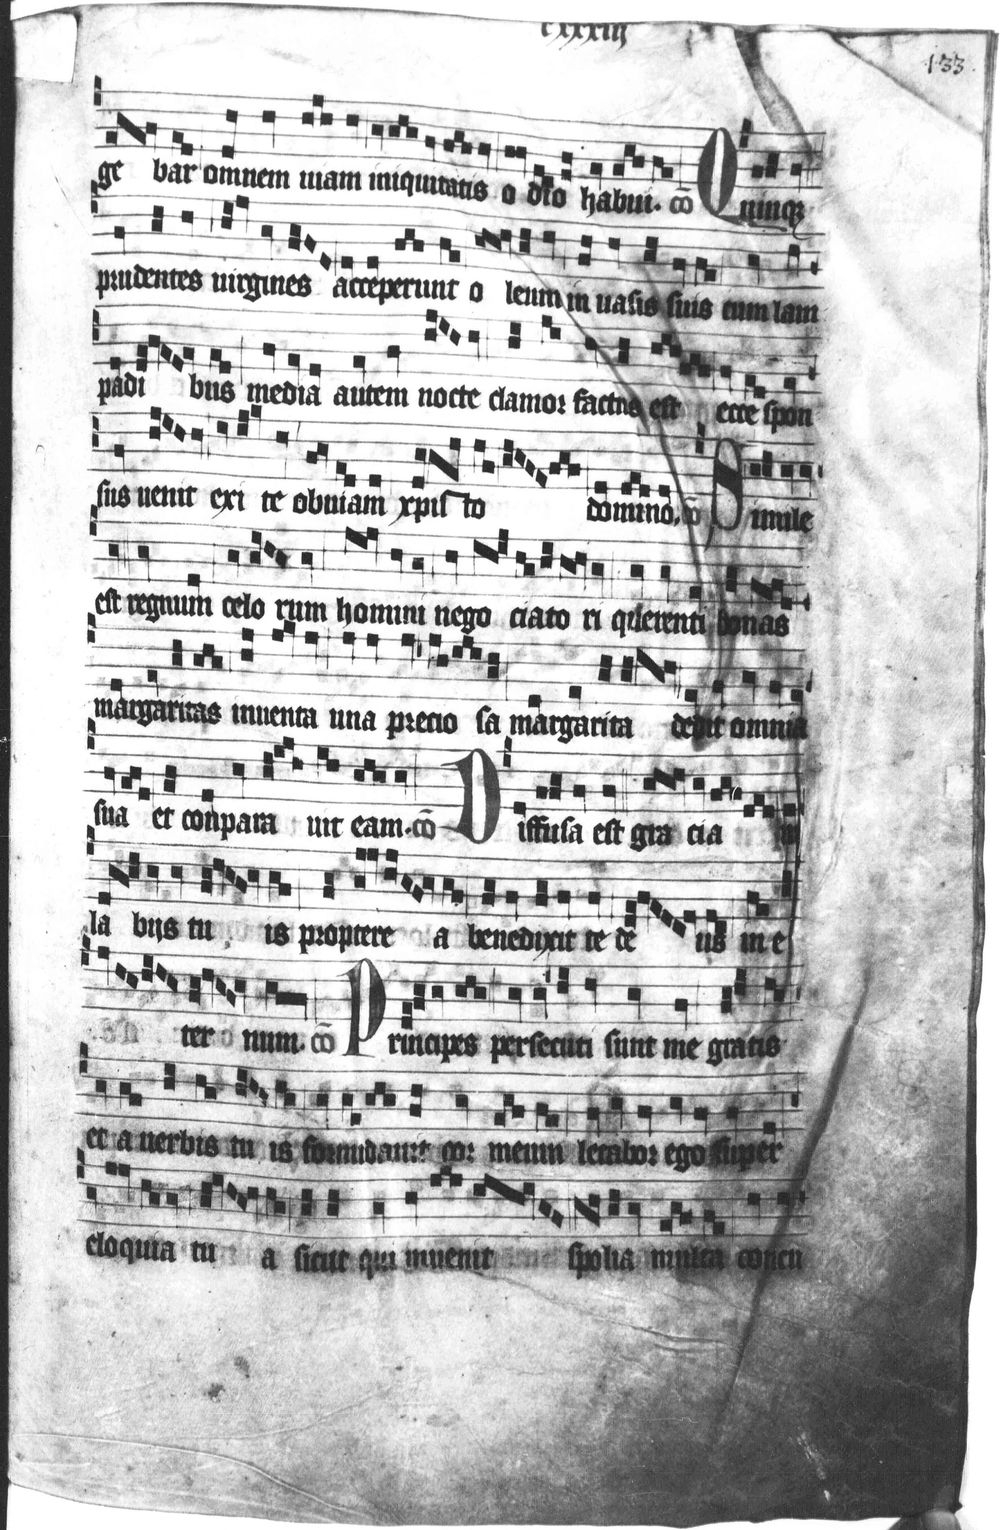 cxxxiij
133
ge bar omnem uiam iniquitatis o dio habui. cō Quinqȝ
prudentes uirgines acceperunt o leum in uasis suis cum lam
padi bus media autem nocte clamor factus est ecce spon
sus uenit exi te obuiam xpis to domino. cō Simile
est regnum celo rum homini nego ciato ri querenti bonas
margaritas inuenta una precio sa margarita dedit omnia
sua et conpara uit eam. cō Diffusa est gra cia in
la bijs tu is proptere a benedixit te de us in e
ter num. cō Principes persecuti sunt me gratis
et a uerbis tu is formidauit cor meum letabor ego super
eloquia tu a sicut qui inuenit spolia multa concu